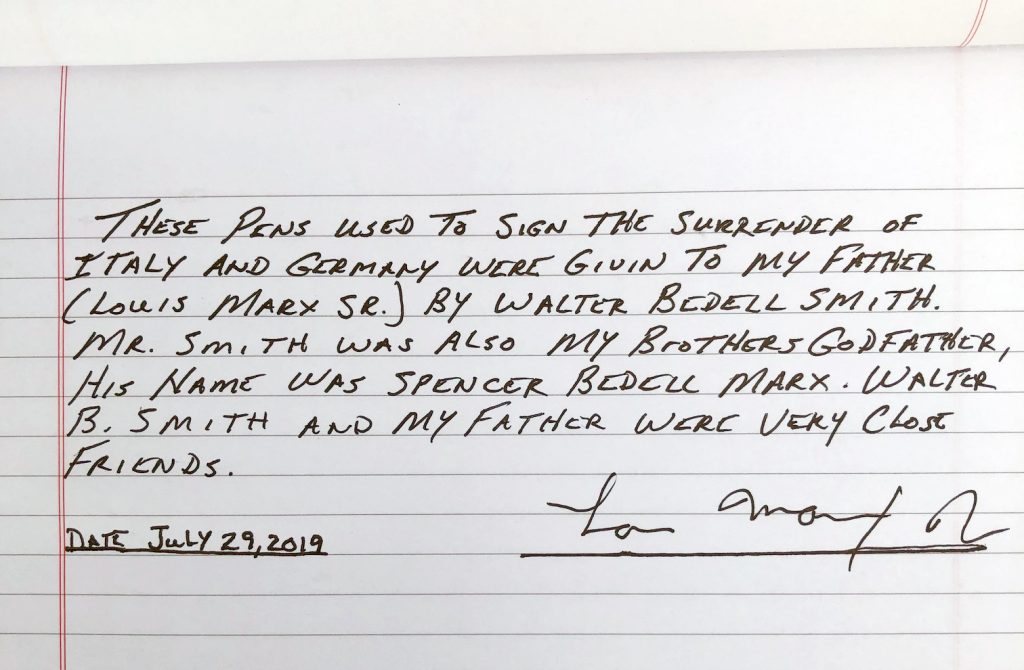 THESE PENS USED TO SIGN THE SURRENDER OF
ITALY AND GERMANY WERE GIVIN TO MY FATHER
(LOUIS MARX SR.) BY WALTER BEDELL SMITH.
MR. SMITH WAS ALSO MY BROTHERS GODFATHER,
HIS NAME WAS SPENCER BEDELL MARX. WALTER
B. SMITH AND MY FATHER WERE VERY CLOSE
FRIENDS.
DATE JULY 29, 2019